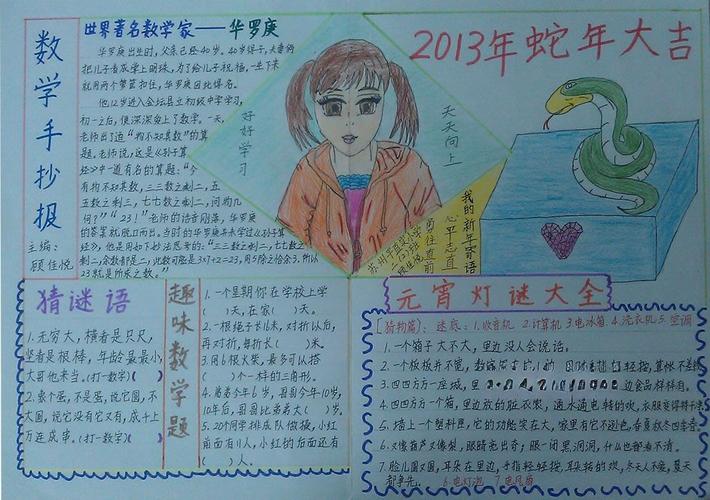 数学手抄报
主编：
顾佳悦
世界著名数学家——华罗庚
华罗庚出生时，父亲已经40岁。40岁得子，夫妻俩
把儿子看成掌上明珠，为了给儿子祝福，一生下来
就用两个箩筐扣住，华罗庚因此得名。
他12岁进入金坛县立初级中学学习，
初一之后，便深深爱上了数学。一天，
老师出了道“物不知其数”的算
题。老师说，这是《孙子算
经》中一道有名的算题：“今
有物不知其数，三三数之剩二，五
五数之剩三，七七数之剩二，问物几
何？”“23！”老师的话音刚落，华罗庚
的答案就脱口而出。当时的华罗庚并未学过《孙子算
经》，他是用如下妙法思考的：“三三数之剩二，七七数之
剩二，余数都是二，此数可能是3×7+2=23，用5除之恰余3，所以
23就是所求之数。”
好好学习
天天向上
2013年蛇年大吉
我的新年寄语
心平志直
勇往直前
猜谜语
1.无穷大，横着是尺尺，
坐着是根棒，年龄虽最小，
大哥他来当。（打一数字）（ ）
2.像个蛋，不是蛋，说它圆，不
大圆，说它没有它又有，成千上
万连成串。（打一数字）（ ）
趣味数学题
1.一个星期你在学校上学
（ ）天，在家（ ）天。
2.一根绳子长16米，对折以后，
再对折，每折长（ ）米。
3.用6根火柴，最多可以搭
（ ）个一样的三角形。
4.弟弟今年6岁，哥哥今年10岁，
10年后，哥哥比弟弟大（ ）岁。
5.20个同学排成队做操，小红
前面有11人，小红的后面还有
（ ）人。
元宵灯谜大全
［猜物篇］：谜底：1.收音机 2.计算机 3.电冰箱 4.洗衣机 5.空调
1.一个箱子大不大，里边没人会说话。
2.一个板板并不宽，轻按，算帐不差
3.四四方方一座城，里边食品样样有。
4.四四方方一个箱，里边放的脏衣裳，通水通电转的欢，衣服变得
5.墙上一个塑料匣，它的功能实在大，家里有它不透色，春夏秋冬四季
6.又像葫芦又像梨，眼睛亮出奇；眼一闭黑洞洞，什么也都看不清。
7.脸儿圆又圆，耳朵在里边，手指轻轻按，耳朵转的欢，冬天人不爱，夏天
都争先。 6.电灯泡 7.电风扇